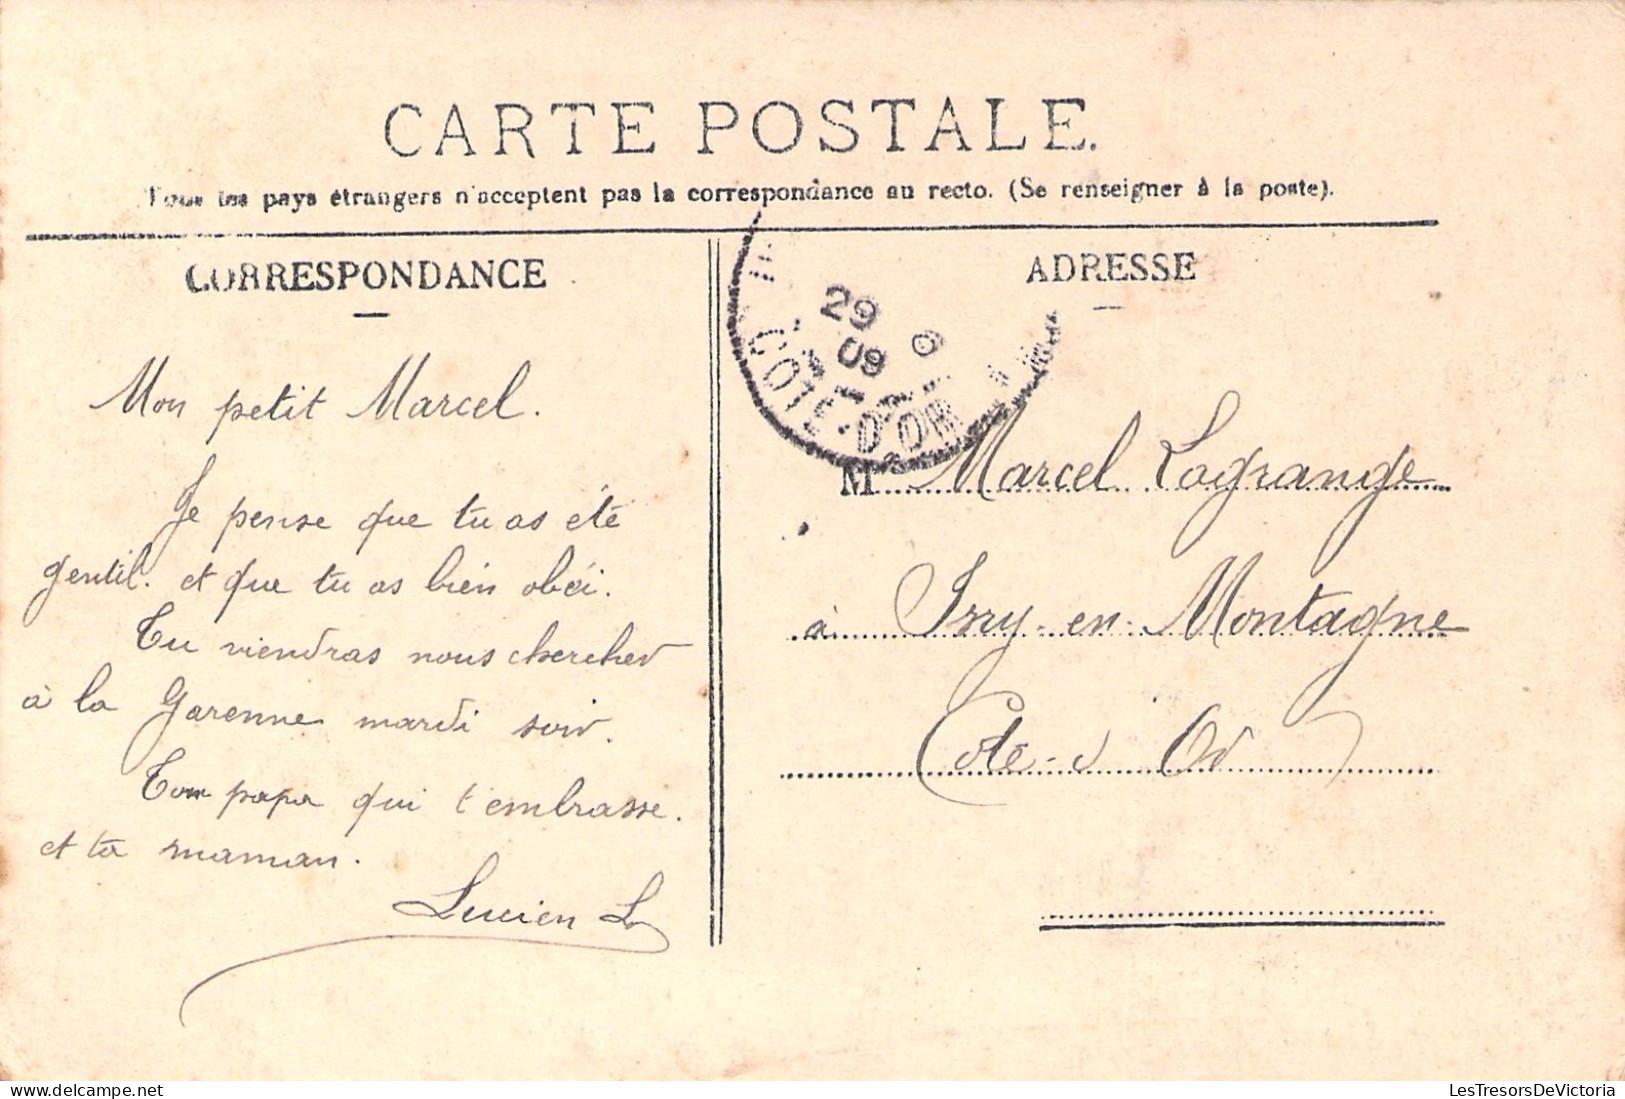 CARTE POSTALE.
Tous les pays étrangers n'acceptent pas la correspondance au recto. (Se renseigner à la poste).
CORRESPONDANCE
Mon petit Marcel.
Je pense que tu as été
gentil. et que tu as bien obéi.
Tu viendras nous chercher
à la Garenne mardi soir.
Ton papa qui t'embrasse.
et ta maman.
Lucien L
ADRESSE
29 6
09
COTE-D'OR
M Marcel Lagrange
à Issy-en-Montagne
Côte-d'Or
LesTresorsDeVictoria